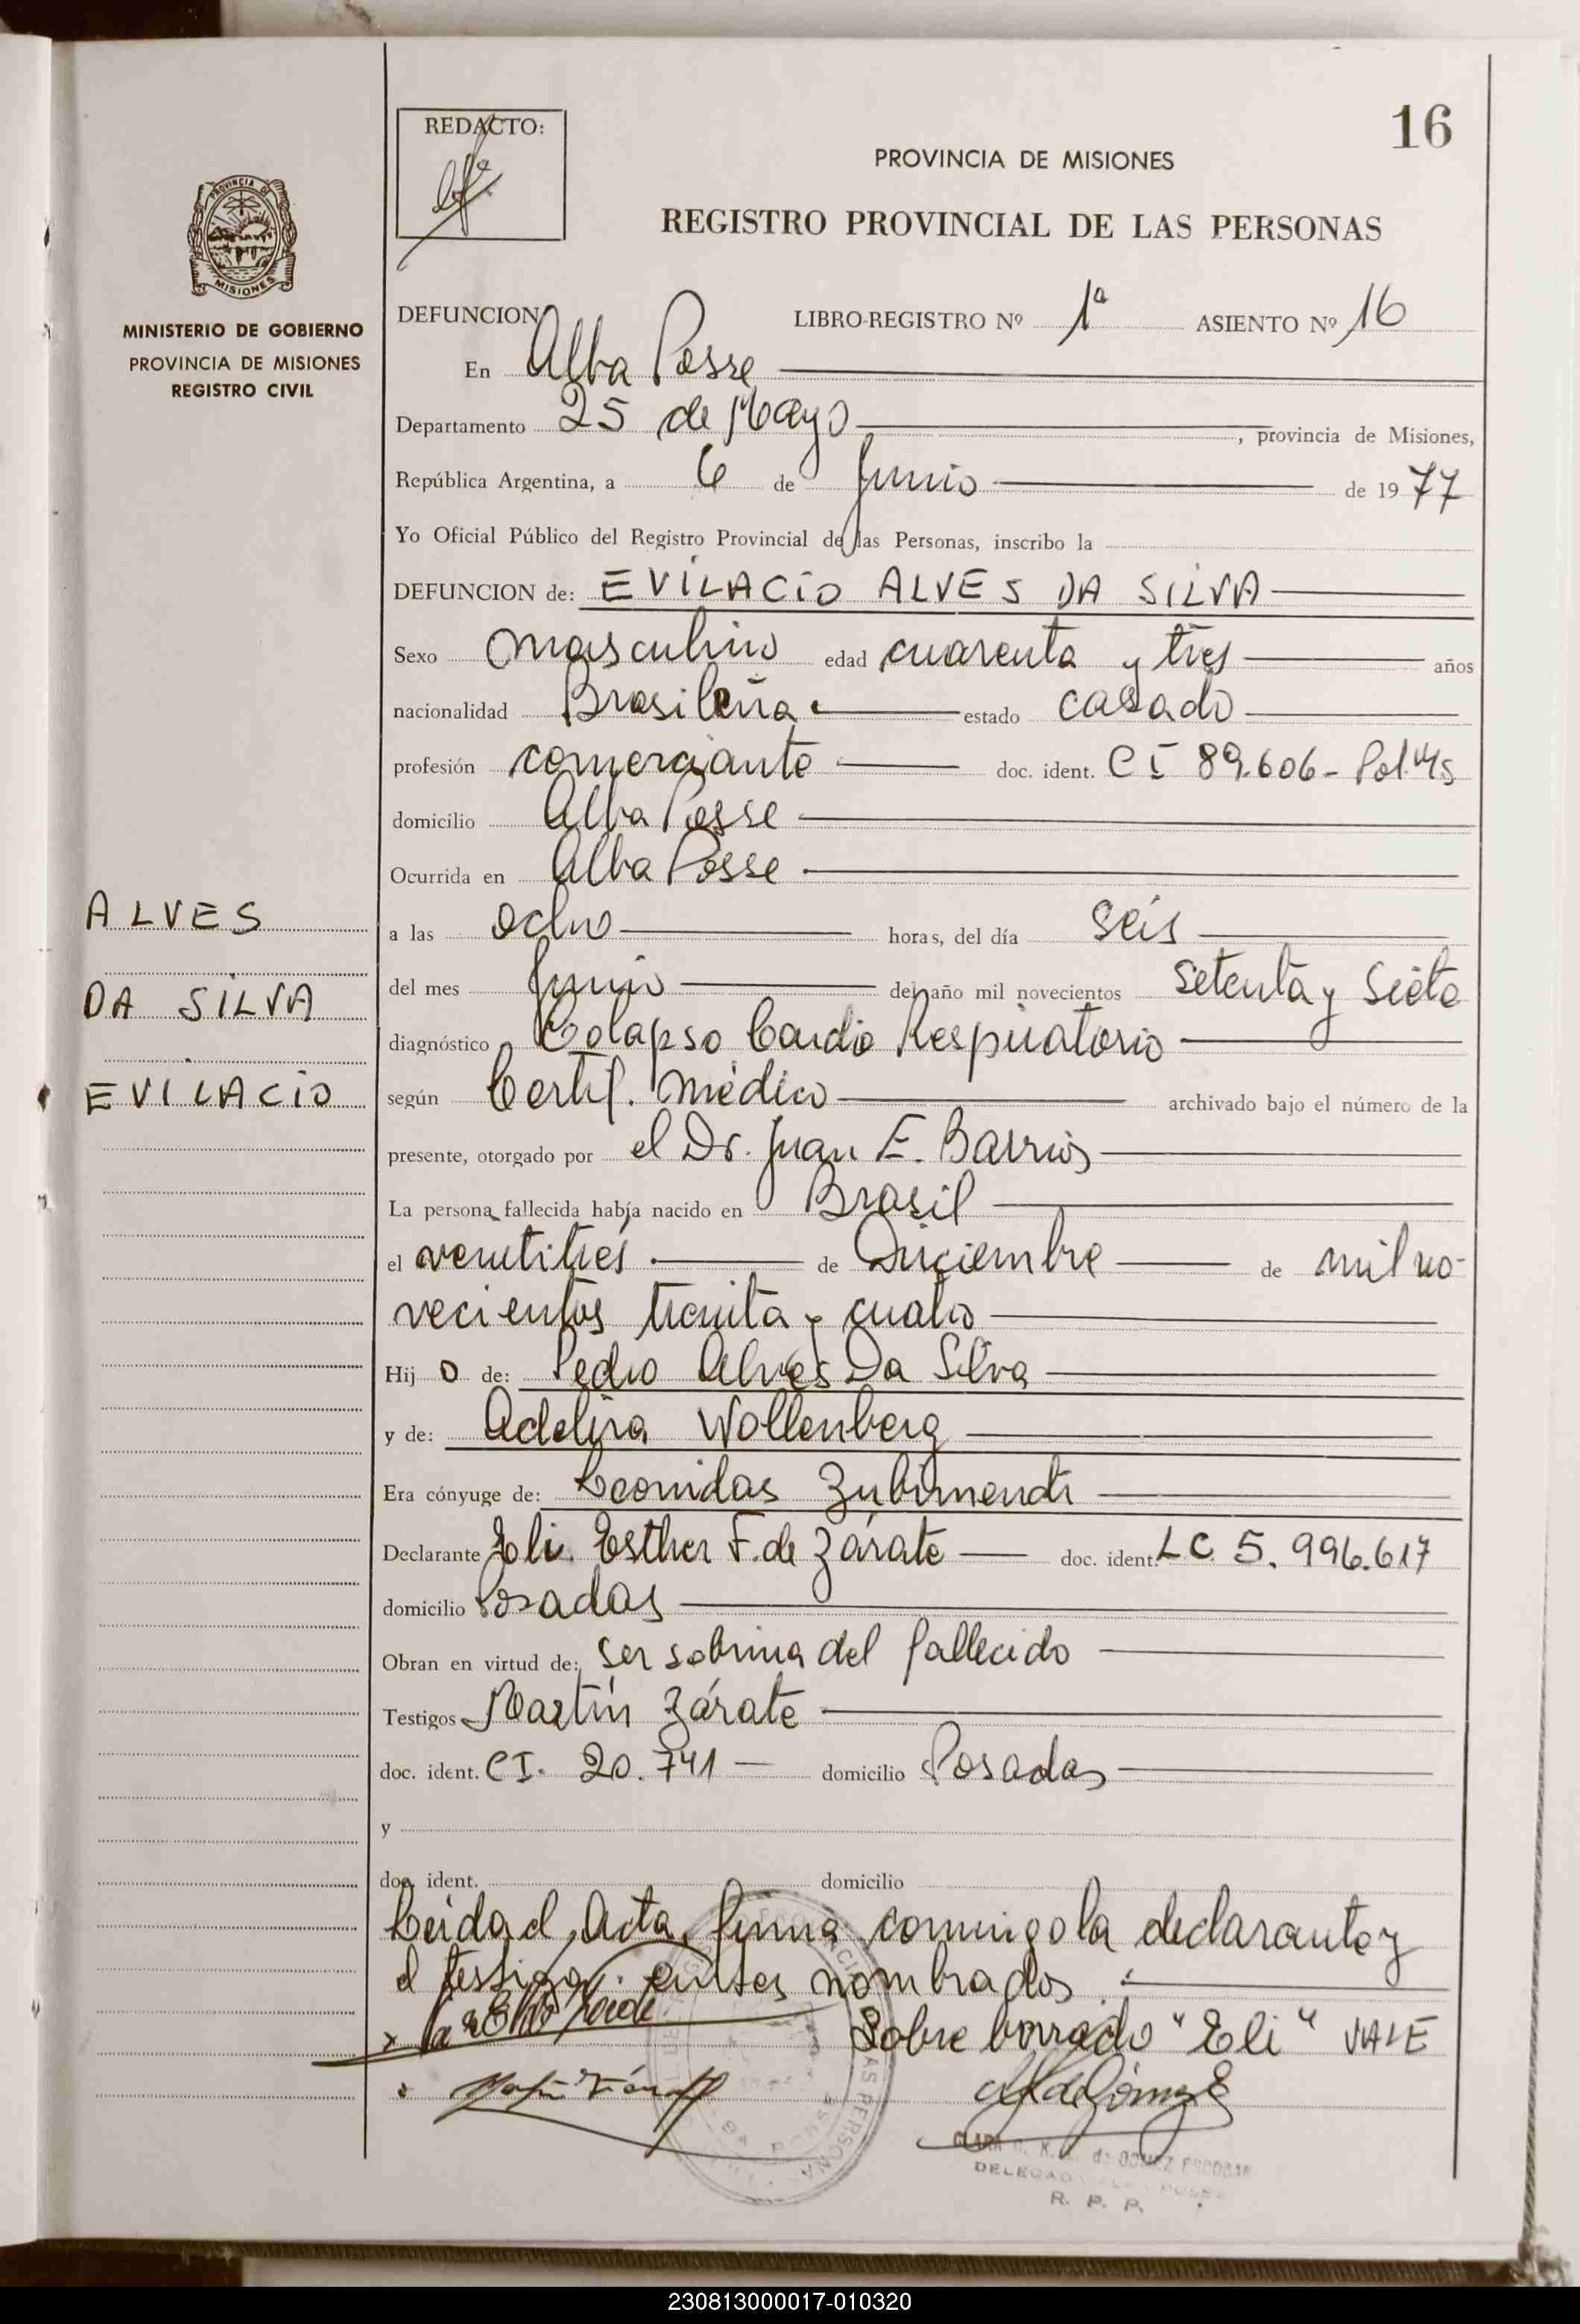 16
REDACTO:
PROVINCIA DE MISIONES
REGISTRO PROVINCIAL DE LAS PERSONAS
PROVINCIA DE
MISIONES
MINISTERIO DE GOBIERNO
PROVINCIA DE MISIONES
REGISTRO CIVIL
DEFUNCION LIBRO-REGISTRO Nº 1ª ASIENTO Nº 16
En Alba Posse
Departamento 25 de Mayo, provincia de Misiones,
República Argentina, a 6 de Junio de 1977
Yo Oficial Público del Registro Provincial de las Personas, inscribo la
DEFUNCION de: EVILACIO ALVES DA SILVA
Sexo masculino edad cuarenta y tres años
nacionalidad Brasileña estado casado
profesión comerciante doc. ident. CI 89.606- Pol. Ms
domicilio Alba Posse
Ocurrida en Alba Posse
a las ocho horas, del día seis
del mes Junio del año mil novecientos setenta y Siete
diagnóstico Colapso Cardio Respiratorio
según Certif. médico archivado bajo el número de la
presente, otorgado por el Dr. Juan E. Barrios
La persona fallecida había nacido en Brasil
el veintitrés de Diciembre de mil no-
vecientos treinta y cuatro
Hijo de: Pedro Alves Da Silva
y de: Adelina Wollenberg
Era cónyuge de: Leonidas Zubimendi
Declarante Eli Esther F. de Zárate doc. ident. LC 5.996.617
domicilio Posadas
Obran en virtud de: ser sobrina del fallecido
Testigos Martín Zárate
doc. ident. CI. 20.741 domicilio Posadas
y
doc. ident. domicilio
Leída el Acta, firma conmigo la declarante y
el testigo antes nombrados
Sobre borrado "Eli" VALE
ALVES
DA SILVA
EVILACIO
DE GOMEZ ESCOBAR
DELEGAD
R. P. P.
230813000017-010320